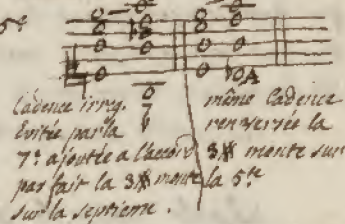 5.te
7
Cadence irrég.
évitée par la
7.e ajoutée a l'accord
parfait la 3# monte
sur la septieme.
même Cadence
renversée la
3# monte sur
la 5.te